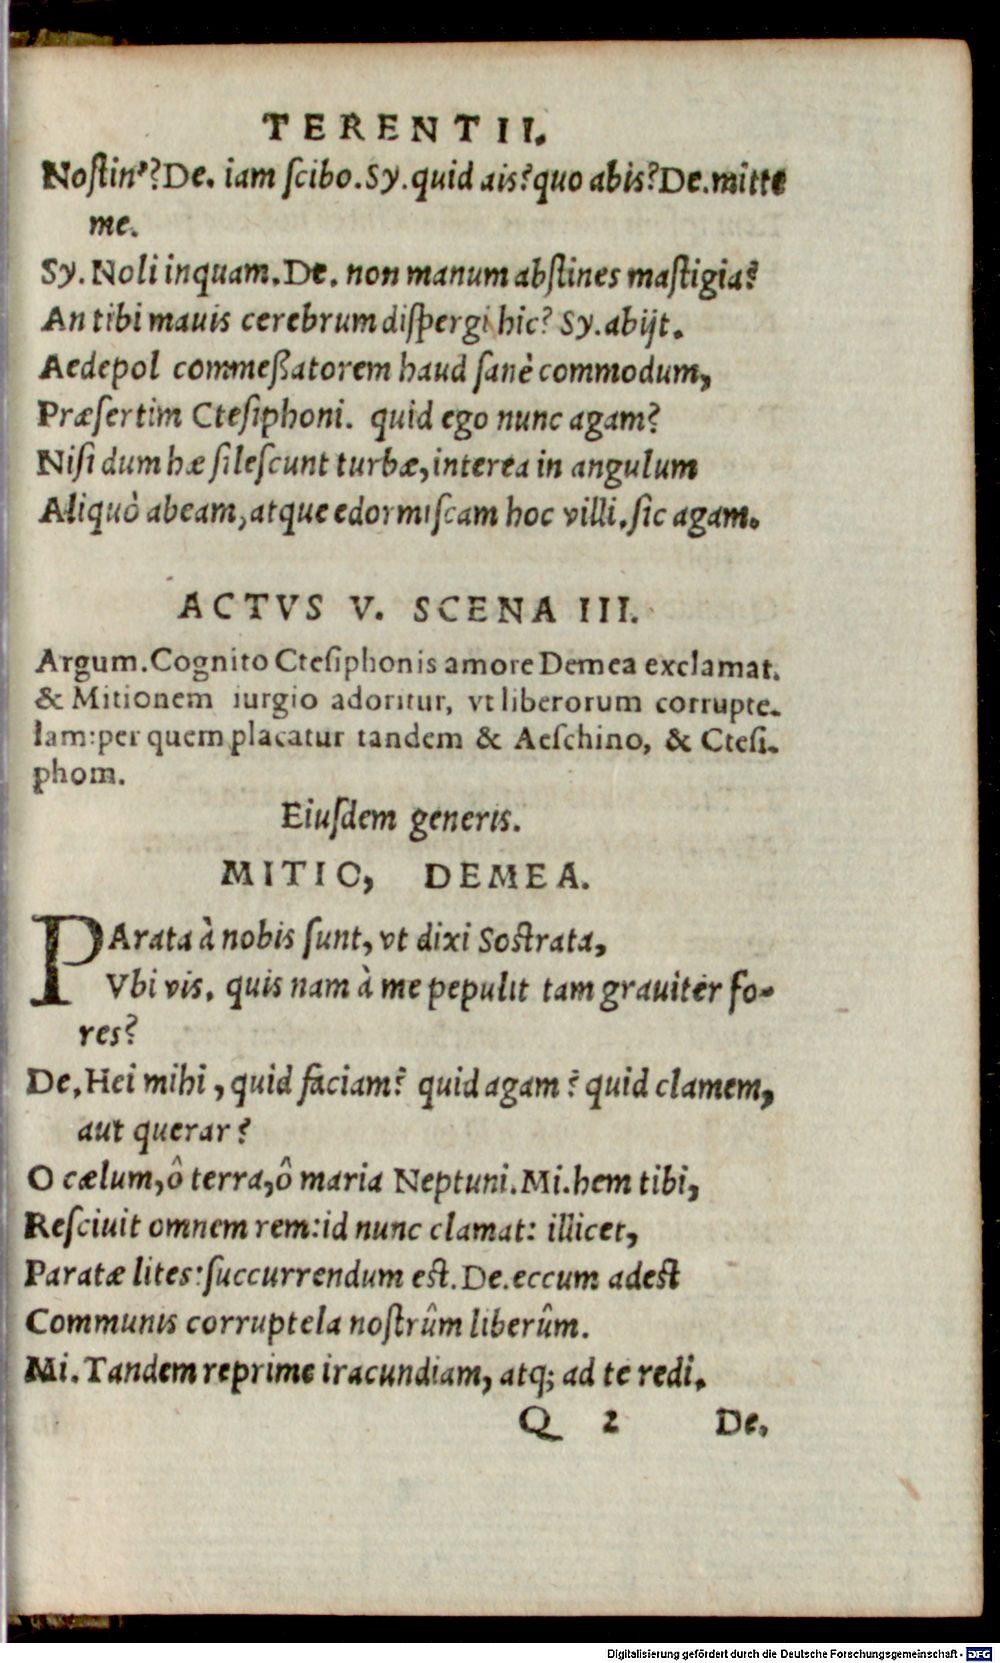 TERENTII.
Noſtin'? De. iam ſcibo. Sy. quid ais? quo abis? De. mitte
me.
Sy. Noli inquam. De. non manum abſtines maſtigia?
An tibi mauis cerebrum diſpergi hic? Sy. abijt.
Aedepol commeßatorem haud ſanè commodum,
Præſertim Cteſiphoni. quid ego nunc agam?
Niſi dum hæ ſileſcunt turbæ, interea in angulum
Aliquò abeam, atque edormiſcam hoc villi. ſic agam.
ACTVS V. SCENA III.
Argum. Cognito Cteſiphonis amore Demea exclamat.
& Mitionem iurgio adoritur, vt liberorum corrupte-
lam: per quem placatur tandem & Aeſchino, & Cteſi-
phoni.
Eiuſdem generis.
MITIO, DEMEA.
PArata à nobis ſunt, vt dixi Soſtrata,
Vbi vis. quis nam à me pepulit tam grauiter fo-
res?
De. Hei mihi, quid faciam? quid agam? quid clamem,
aut querar?
O cælum, ô terra, ô maria Neptuni. Mi. hem tibi,
Reſciuit omnem rem: id nunc clamat: illicet,
Paratæ lites: ſuccurrendum eſt. De. eccum adeſt
Communis corruptela noſtrûm liberûm.
Mi. Tandem reprime iracundiam, atq; ad te redi.
Q 2 De.
Digitalisierung gefördert durch die Deutsche Forschungsgemeinschaft - DFG